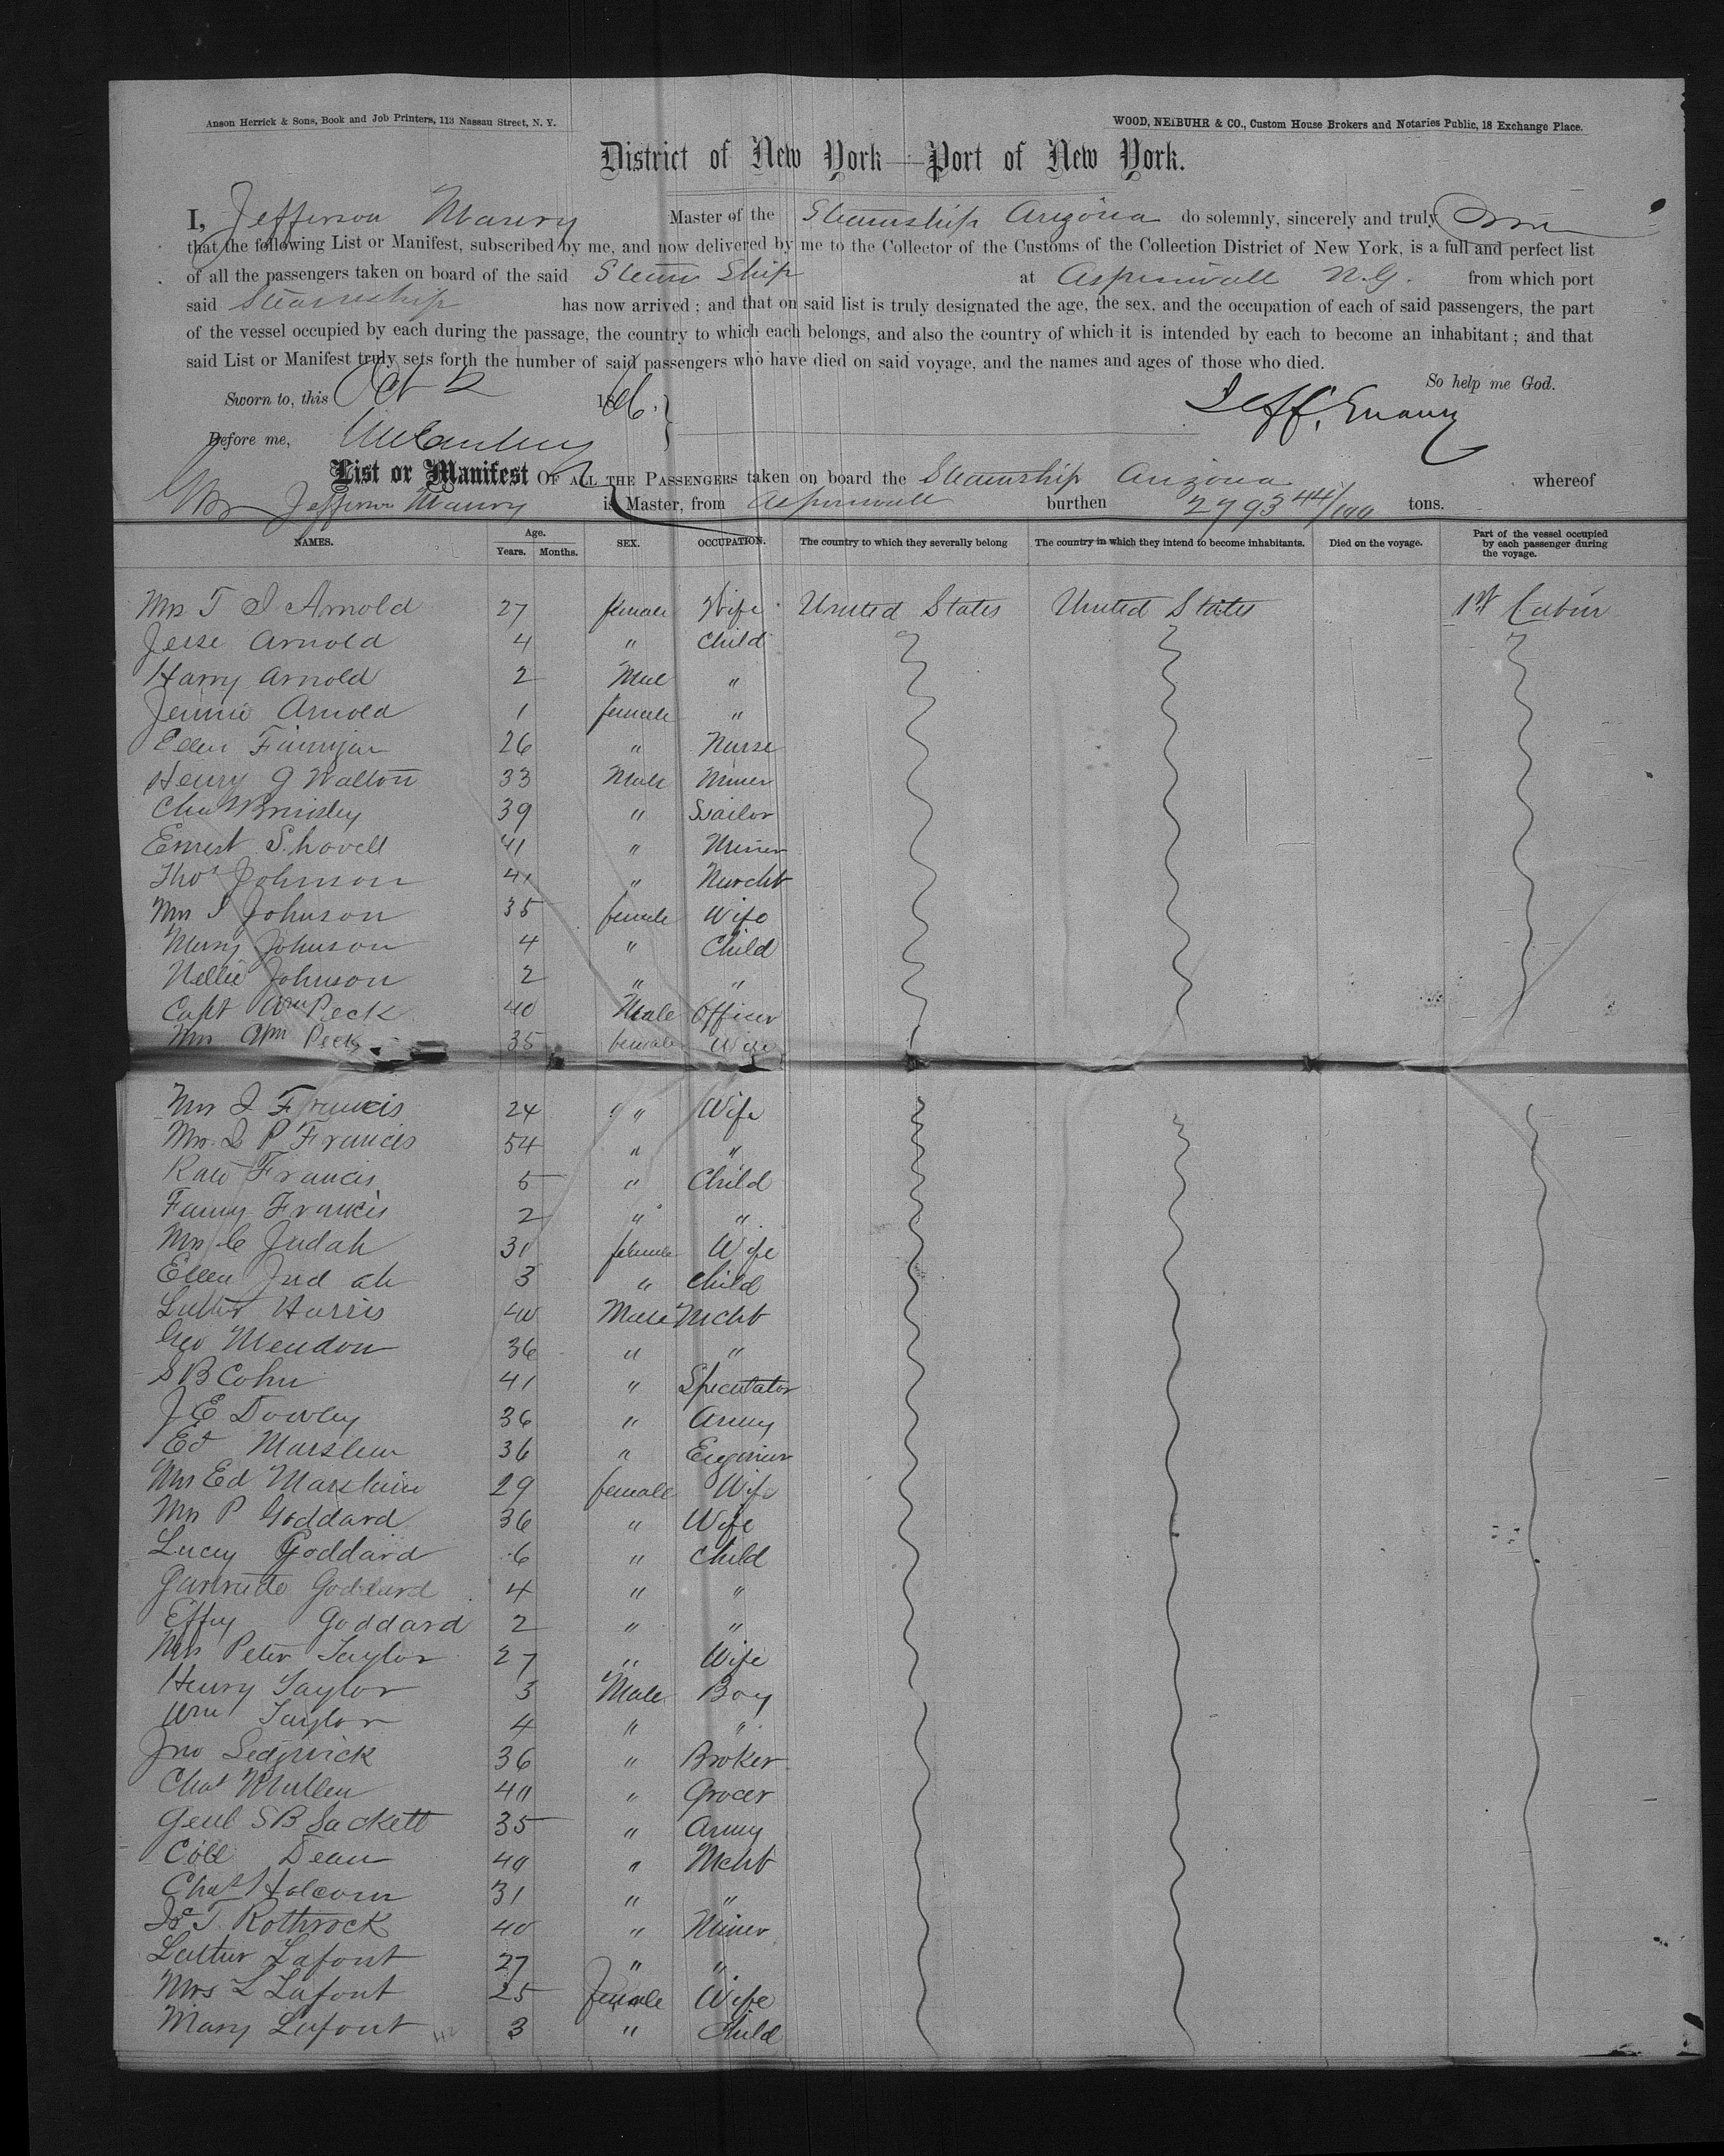 Anson Herrick & Sons, Book and Job Printers, 113 Nassau Street, N. Y.
WOOD, NEIBUHR & CO., Custom House Brokers and Notaries Public, 18 Exchange Place.
District of New York—Port of New York.
I, Jefferson Maury Master of the Steamship Arizona do solemnly, sincerely and truly
that the following List or Manifest, subscribed by me, and now delivered by me to the Collector of the Customs of the Collection District of New York, is a full and perfect list
of all the passengers taken on board of the said Steam Ship at Aspinwall N.G. from which port
said Steamship has now arrived ; and that on said list is truly designated the age, the sex, and the occupation of each of said passengers, the part
of the vessel occupied by each during the passage, the country to which each belongs, and also the country of which it is intended by each to become an inhabitant ; and that
said List or Manifest truly sets forth the number of said passengers who have died on said voyage, and the names and ages of those who died.
So help me God.
Sworn to, this Oct 2 1866.
Jeff. Maury
Before me,
List or Manifest OF ALL THE PASSENGERS taken on board the Steamship Arizona whereof
Jefferson Maury is Master, from Aspinwall burthen 2793 44/100 tons.
NAMES. Age. Years. Months. SEX. OCCUPATION. The country to which they severally belong The country in which they intend to become inhabitants. Died on the voyage. Part of the vessel occupied by each passenger during the voyage.
Mrs T S Arnold 27 female Wife United States United States 1st Cabin
Jesse Arnold 4 " Child
Harry Arnold 2 Male "
Jennie Arnold 1 female "
Ellen 26 " Nurse
Henry G Walton 33 Male Miner
Chas Brinsley 39 " Sailor
Ernest Shovell 41 " Miner
Thos Johnson 41 " Mercht
Mrs T Johnson 35 female Wife
Johnson 4 " Child
Nellie Johnson 2 " "
Capt Wm Peck 40 Male Officer
Mrs Wm Peck 35 female Wife
Mrs J Francis 24 " " Wife
Mrs J P Francis 54 " "
Kate Francis 5 " Child
Fanny Francis 2 " "
Mrs C Judah 31 female Wife
Ellen Judah 3 " Child
Luther Harris 40 Male Mcht
Geo Mendon 36 " "
S B Cohn 41 " Speculator
J E Dowley 36 " Army
Ed 36 " Engineer
Mrs Ed 29 female Wife
Mrs P Goddard 36 " Wife
Lucy Goddard 6 " Child
Gertrude Goddard 4 " "
Effey Goddard 2 " "
Mrs Peter Taylor 27 " Wife
Henry Taylor 3 Male Boy
Wm Taylor 4 " "
Jno Sedgwick 36 " Broker
Chas Mullen 40 " Grocer
Genl S B Sackett 35 " Army
Coll Dean 40 " Mcht
Chas Holcom 31 " "
T. Rothrock 40 " Miner
Luther Lafont 27 " "
Mrs L Lafont 25 female Wife
Mary Lafont 3 " Child